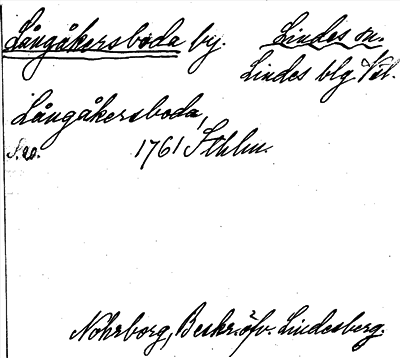 Långåkersboda by. Lindes sn.
Lindes blg Vstl.
Långåkersboda,
S.ο. 1761 Sthlm.
Nohrborg, Beskr. öfv. Lindesberg.